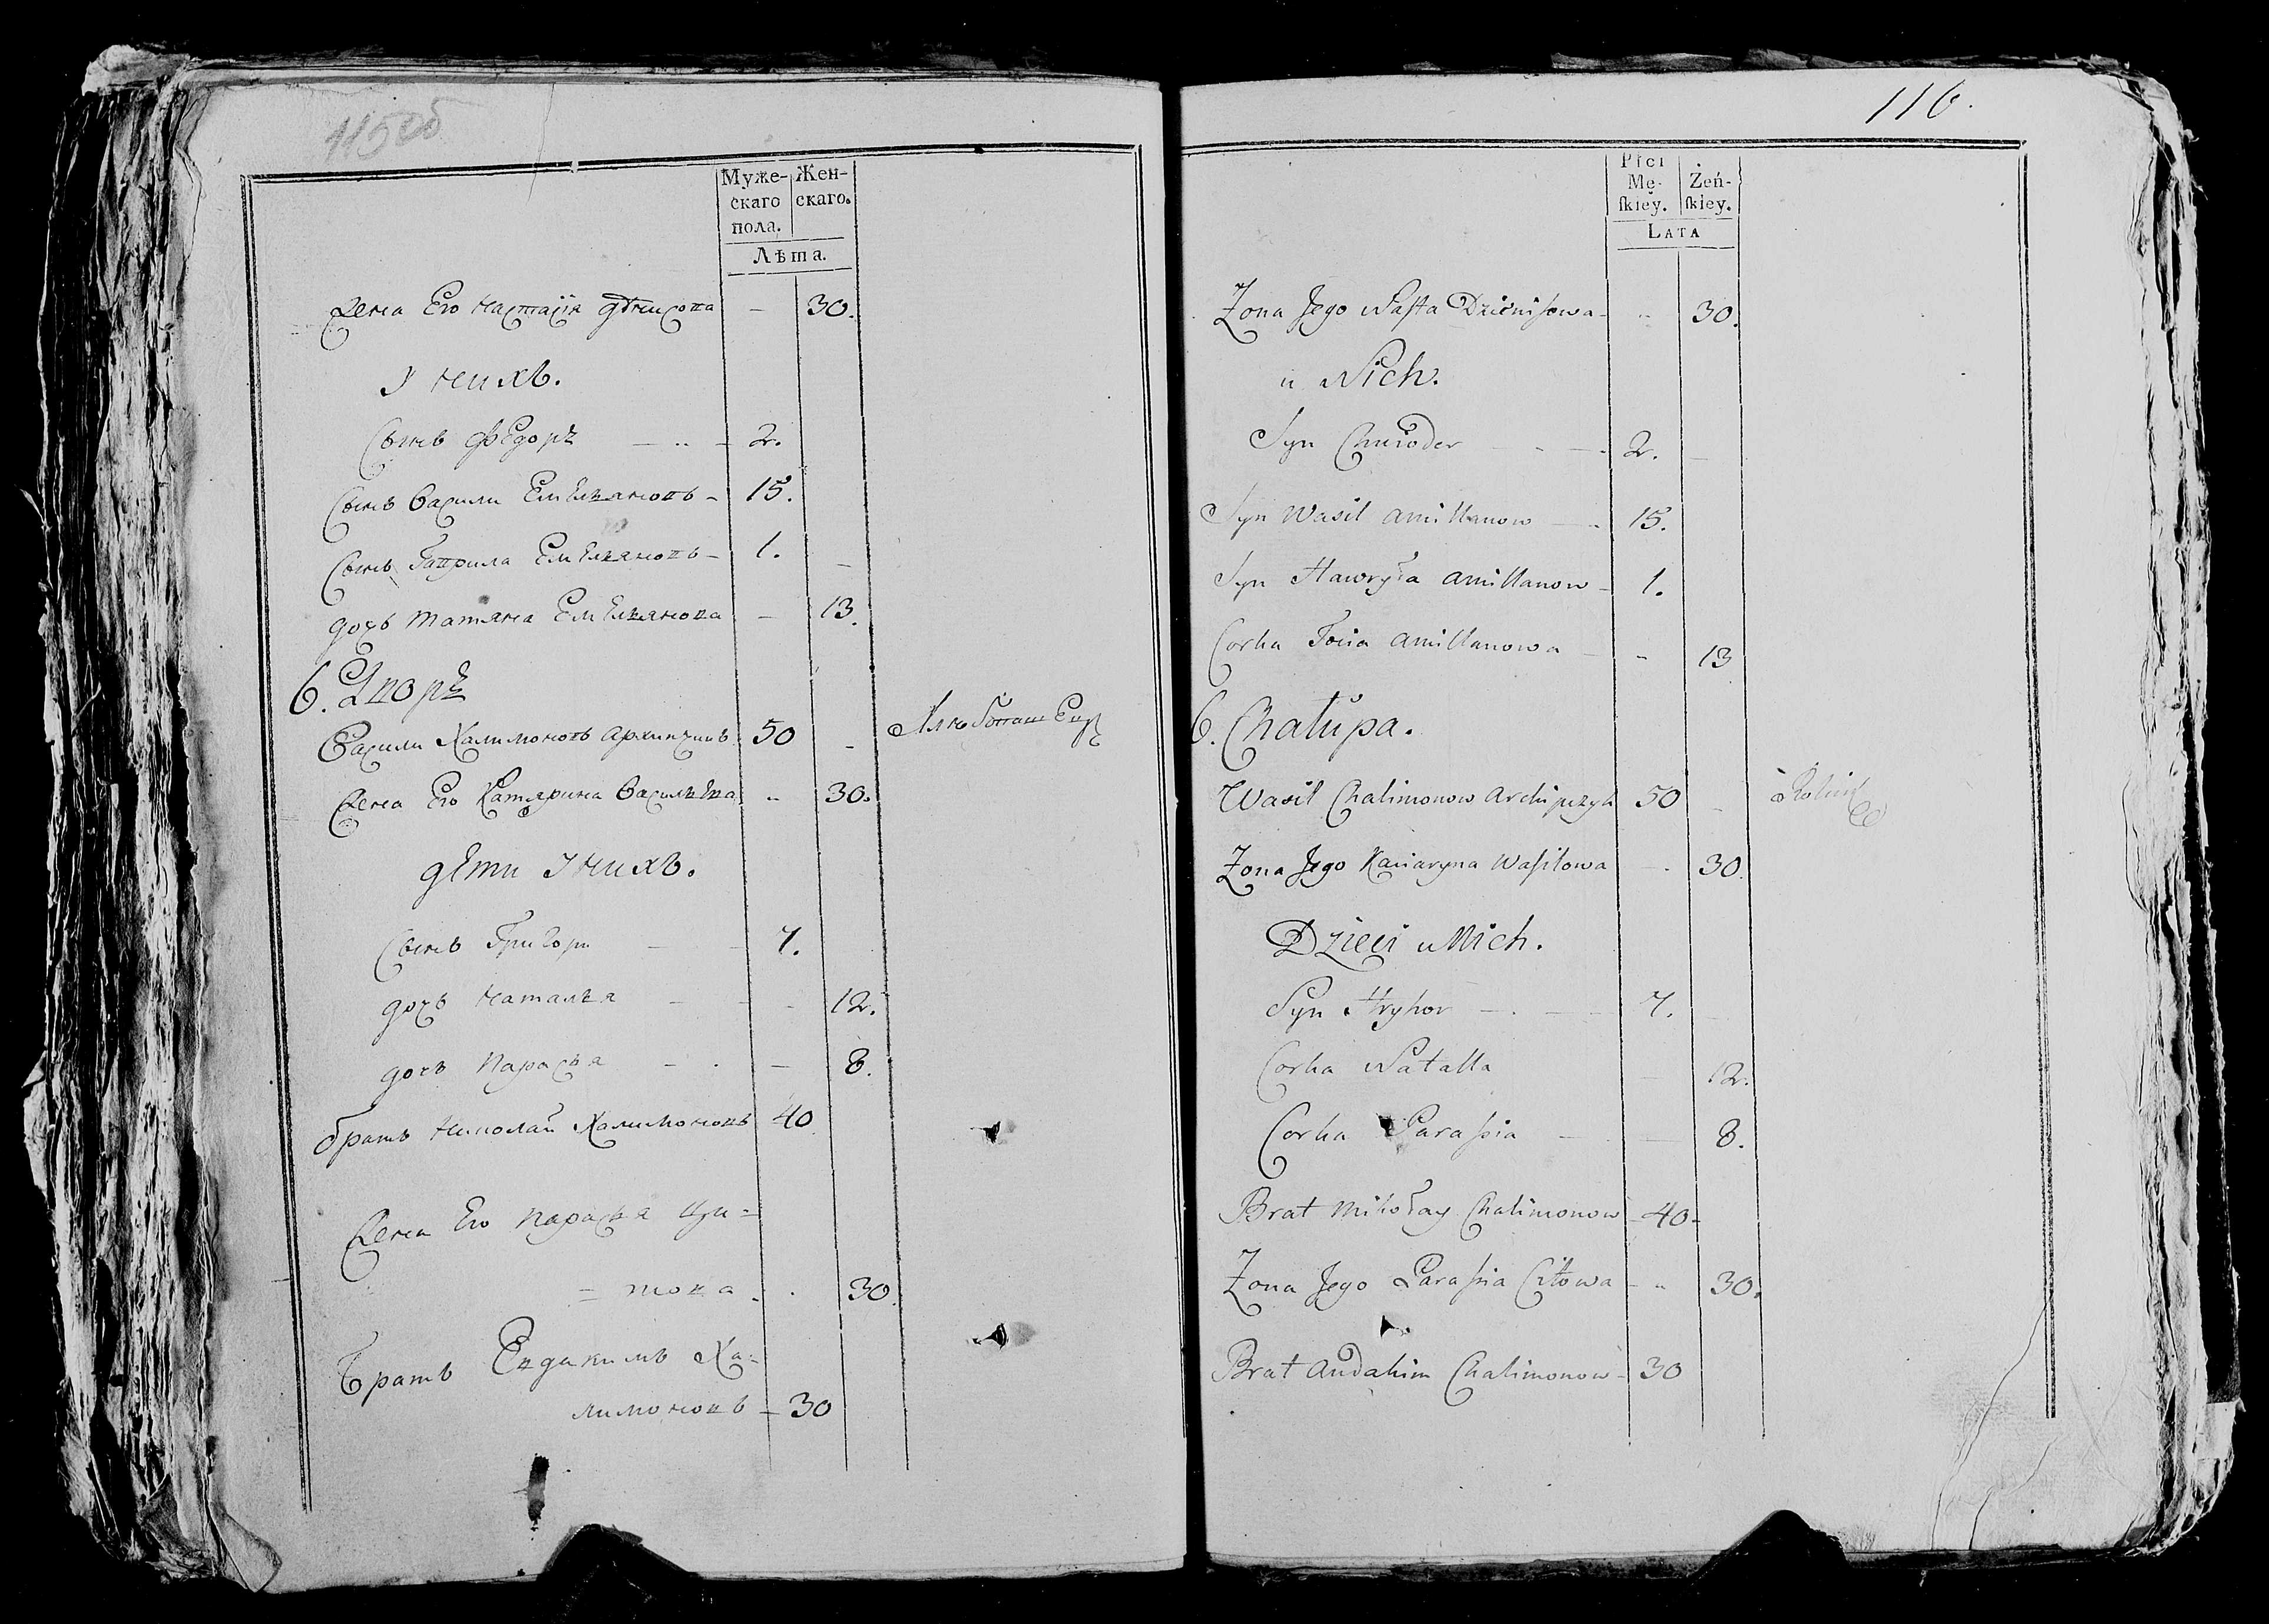 115об
Муже-
скаго
пола.
Жен-
скаго.
Лѣта.
Жена Его Настасїя дѣнисова — 30.
У нихъ.
Сынъ Федоръ — .. — 2.
Сынъ Васили Емельяновъ — 15.
Сынъ Гаврила Емельяновъ — 1. —
дочь татяна Емельянова — 13.
6. Дворъ
Васили Халимоновъ Архипчикъ 50 —
Жена Его Катярина Васильева .. 30.
дети У нихъ.
Сынъ Григори — — 7.
дочь Наталья — — - 12.
дочь Парасья — . — 8.
братъ Николай Халимоновъ 40
Жена Его Парасья Ци=
= това - . 30.
Братъ Евдакимъ Ха=
лимоновъ — 30
116.
Płci
Mę-
ſkiey.
Żeń-
ſkiey.
LATA
Żona Jego Naſta Dzieniſowa - .. 30.
u Nich.
Syn Chwioder — - — . 2. —
Syn Wasil Amillanow — . 15.
Syn Hawryła Amillanow - 1.
Corka Tacia Amillanowa — .. 13
6. Chałupa.
Wasil Chalimonow Archipczyk 50 —
Żona Jego Kaciaryna Waſilowa — . 30.
Dzieci u Nich.
Syn Hryhor — . — 7. —
Corka Natalla — 12.
Corka Paraſsia — — 8.
Brat Mikołay Chalimonow - 40 -
Żona Jego Paraſsia Citowa - .. 30.
Brat Audakim Chalimonow - 30